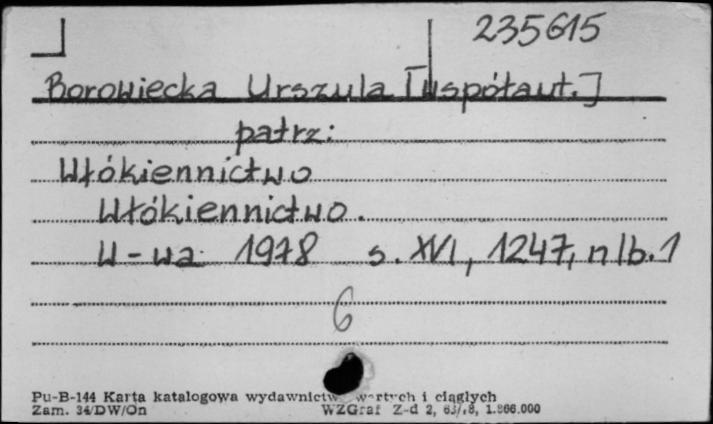 235615
Borowiecka Urszula [współaut.]
patrz:
Włókiennictwo
Włókiennictwo.
W-wa 1978 s. XVI, 1247, nlb. 1
6
Pu-B-144 Karta katalogowa wydawnictw zwartych i ciągłych
Zam. 34/DW/On WZGraf Z-d 2, 1.866.000